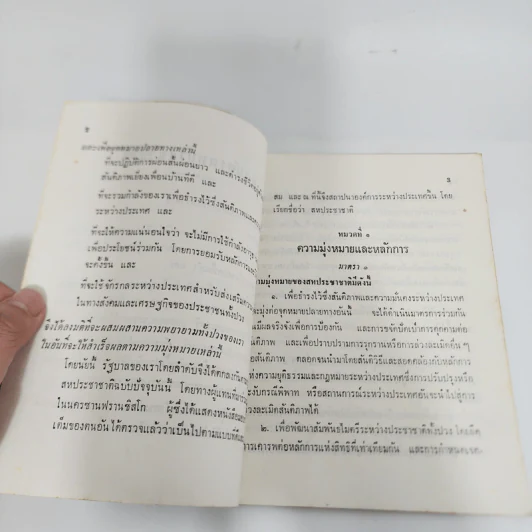 ๒
และเพื่อจุดหมายปลายทางเหล่านี้
ที่จะปฏิบัติการผ่อนสั้นผ่อนยาว และดำรงชีวิต
สันติภาพเยี่ยงเพื่อนบ้านที่ดี และ
ที่จะรวมกำลังของเราเพื่อธำรงไว้ซึ่งสันติภาพและ
ระหว่างประเทศ และ
ให้ความแน่นอนใจว่า จะไม่มีการใช้กำลังอาวุธ
เพื่อประโยชน์ร่วมกัน โดยการยอมรับหลักการและ
จะตั้งขึ้น และ
ที่จะใช้จักรกลระหว่างประเทศสำหรับส่งเสริมความ
ในทางสังคมและเศรษฐกิจของประชาชนทั้งปวง
จึงได้ลงมติที่จะผสมผสานความพยายามทั้งปวงของเรา
ในอันที่จะให้สำเร็จผลตามความมุ่งหมายเหล่านี้
โดยนัยนี้ รัฐบาลของเราโดยลำดับจึงได้ตกลงกัน
สหประชาชาติฉบับปัจจุบันนี้ โดยทางผู้แทนที่มา
ในนครซานฟรานซิสโก ผู้ซึ่งได้แสดงหนังสือมอบ
เต็มของตนอันได้ตรวจแล้วว่าเป็นไปตามแบบที่ดี
๓
สม และ ณ ที่นี้จึงสถาปนาองค์การระหว่างประเทศขึ้น โดย
เรียกชื่อว่า สหประชาชาติ
หมวดที่ ๑
ความมุ่งหมายและหลักการ
มาตรา ๑
ความมุ่งหมายของสหประชาชาติมีดังนี้
๑. เพื่อธำรงไว้ซึ่งสันติภาพและความมั่นคงระหว่างประเทศ
มุ่งต่อจุดหมายปลายทางอันนี้ จะได้ดำเนินมาตรการร่วมกัน
เพื่อการป้องกัน และการขจัดปัดเป่าการคุกคามต่อ
สันติภาพ และเพื่อปราบปรามการรุกรานหรือการล่วงละเมิดอื่น ๆ
สันติภาพ ตลอดจนนำมาโดยสันติวิธีและสอดคล้องกับหลักการ
ความยุติธรรมและกฎหมายระหว่างประเทศซึ่งการปรับปรุงหรือ
ระงับกรณีพิพาท หรือสถานการณ์ระหว่างประเทศอันจะนำไปสู่การ
ล่วงละเมิดสันติภาพได้
๒. เพื่อพัฒนาสัมพันธไมตรีระหว่างประชาชาติทั้งปวง โดยยึด
การเคารพต่อหลักการแห่งสิทธิที่เท่าเทียมกัน และการกำหนดเจต-